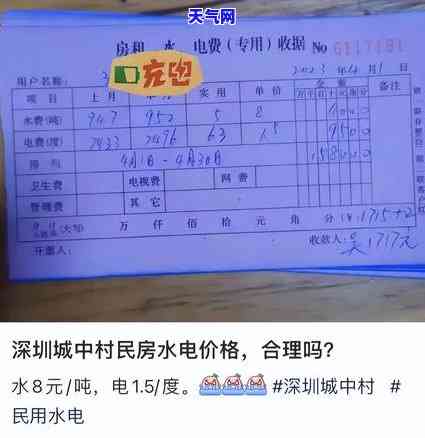 天气网
房租 水 电费（专用）收据 No 6117181
用户名称： 充电 2023年4月1日
项目 上月 本月 实用 单价 金额 备注
万 千 百 十 元 角 分
水费(吨) 947 952 5 8 4000
电费(度) 2433 2496 63 1.5 9500
4月1日-4月30日 158000
卫生费 电视费 网费
管理费 其它
合计(大写) 万 仟 佰 拾 元 角 分 ¥ 1715+2
开票人： 收款人：吴 1717元
深圳城中村民房水电价格，合理吗？
水8元/吨，电1.5/度。🍙🍙🍙 #深圳城中村 #
民用水电